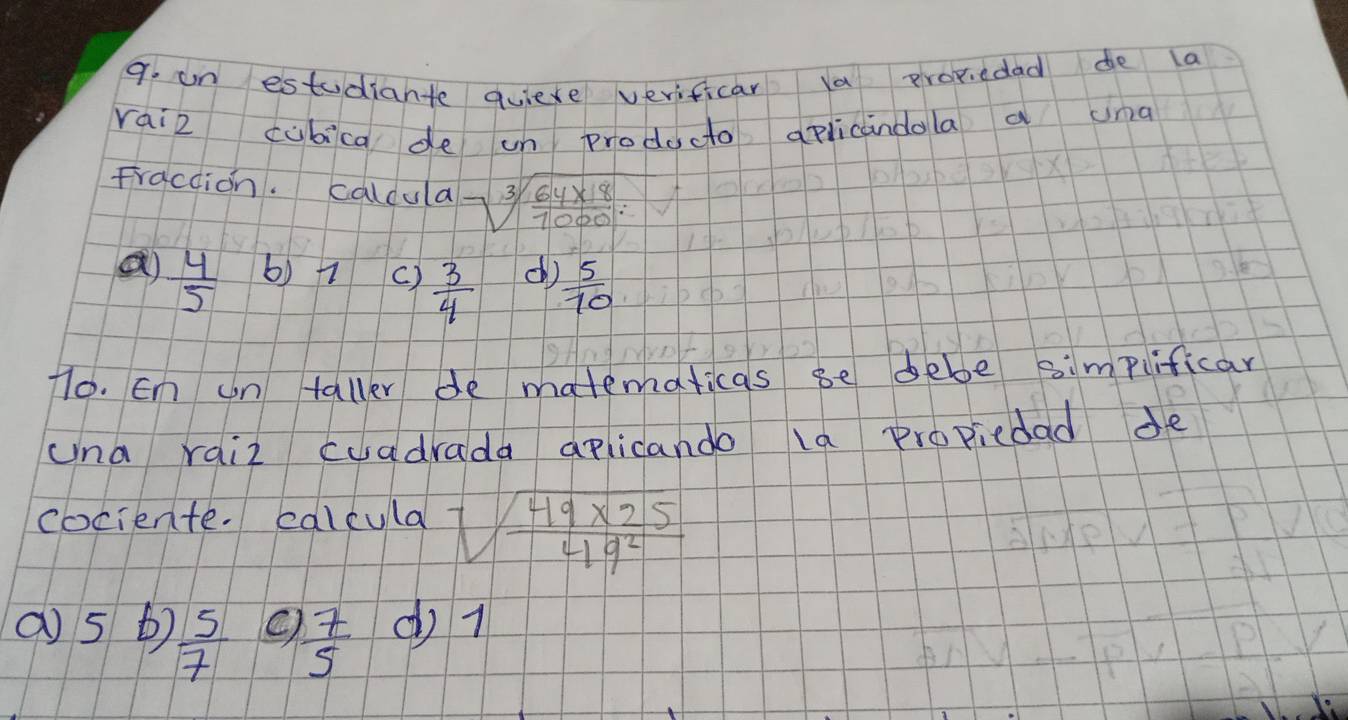 9. un estudiante quiere verificar la propiedad de la
raiz cúbica de un producto aplicándola a una
Fracción. calcula ∛(64×18/1000):
a) 4/5 b) 1 c) 3/4 d) 5/10
10. En un taller de matematicas se debe simplificar
una raiz cuadrada aplicando la propiedad de
cociente. calcula √(49×25/49²)
a) 5 b) 5/7 c) 7/5 d) 1